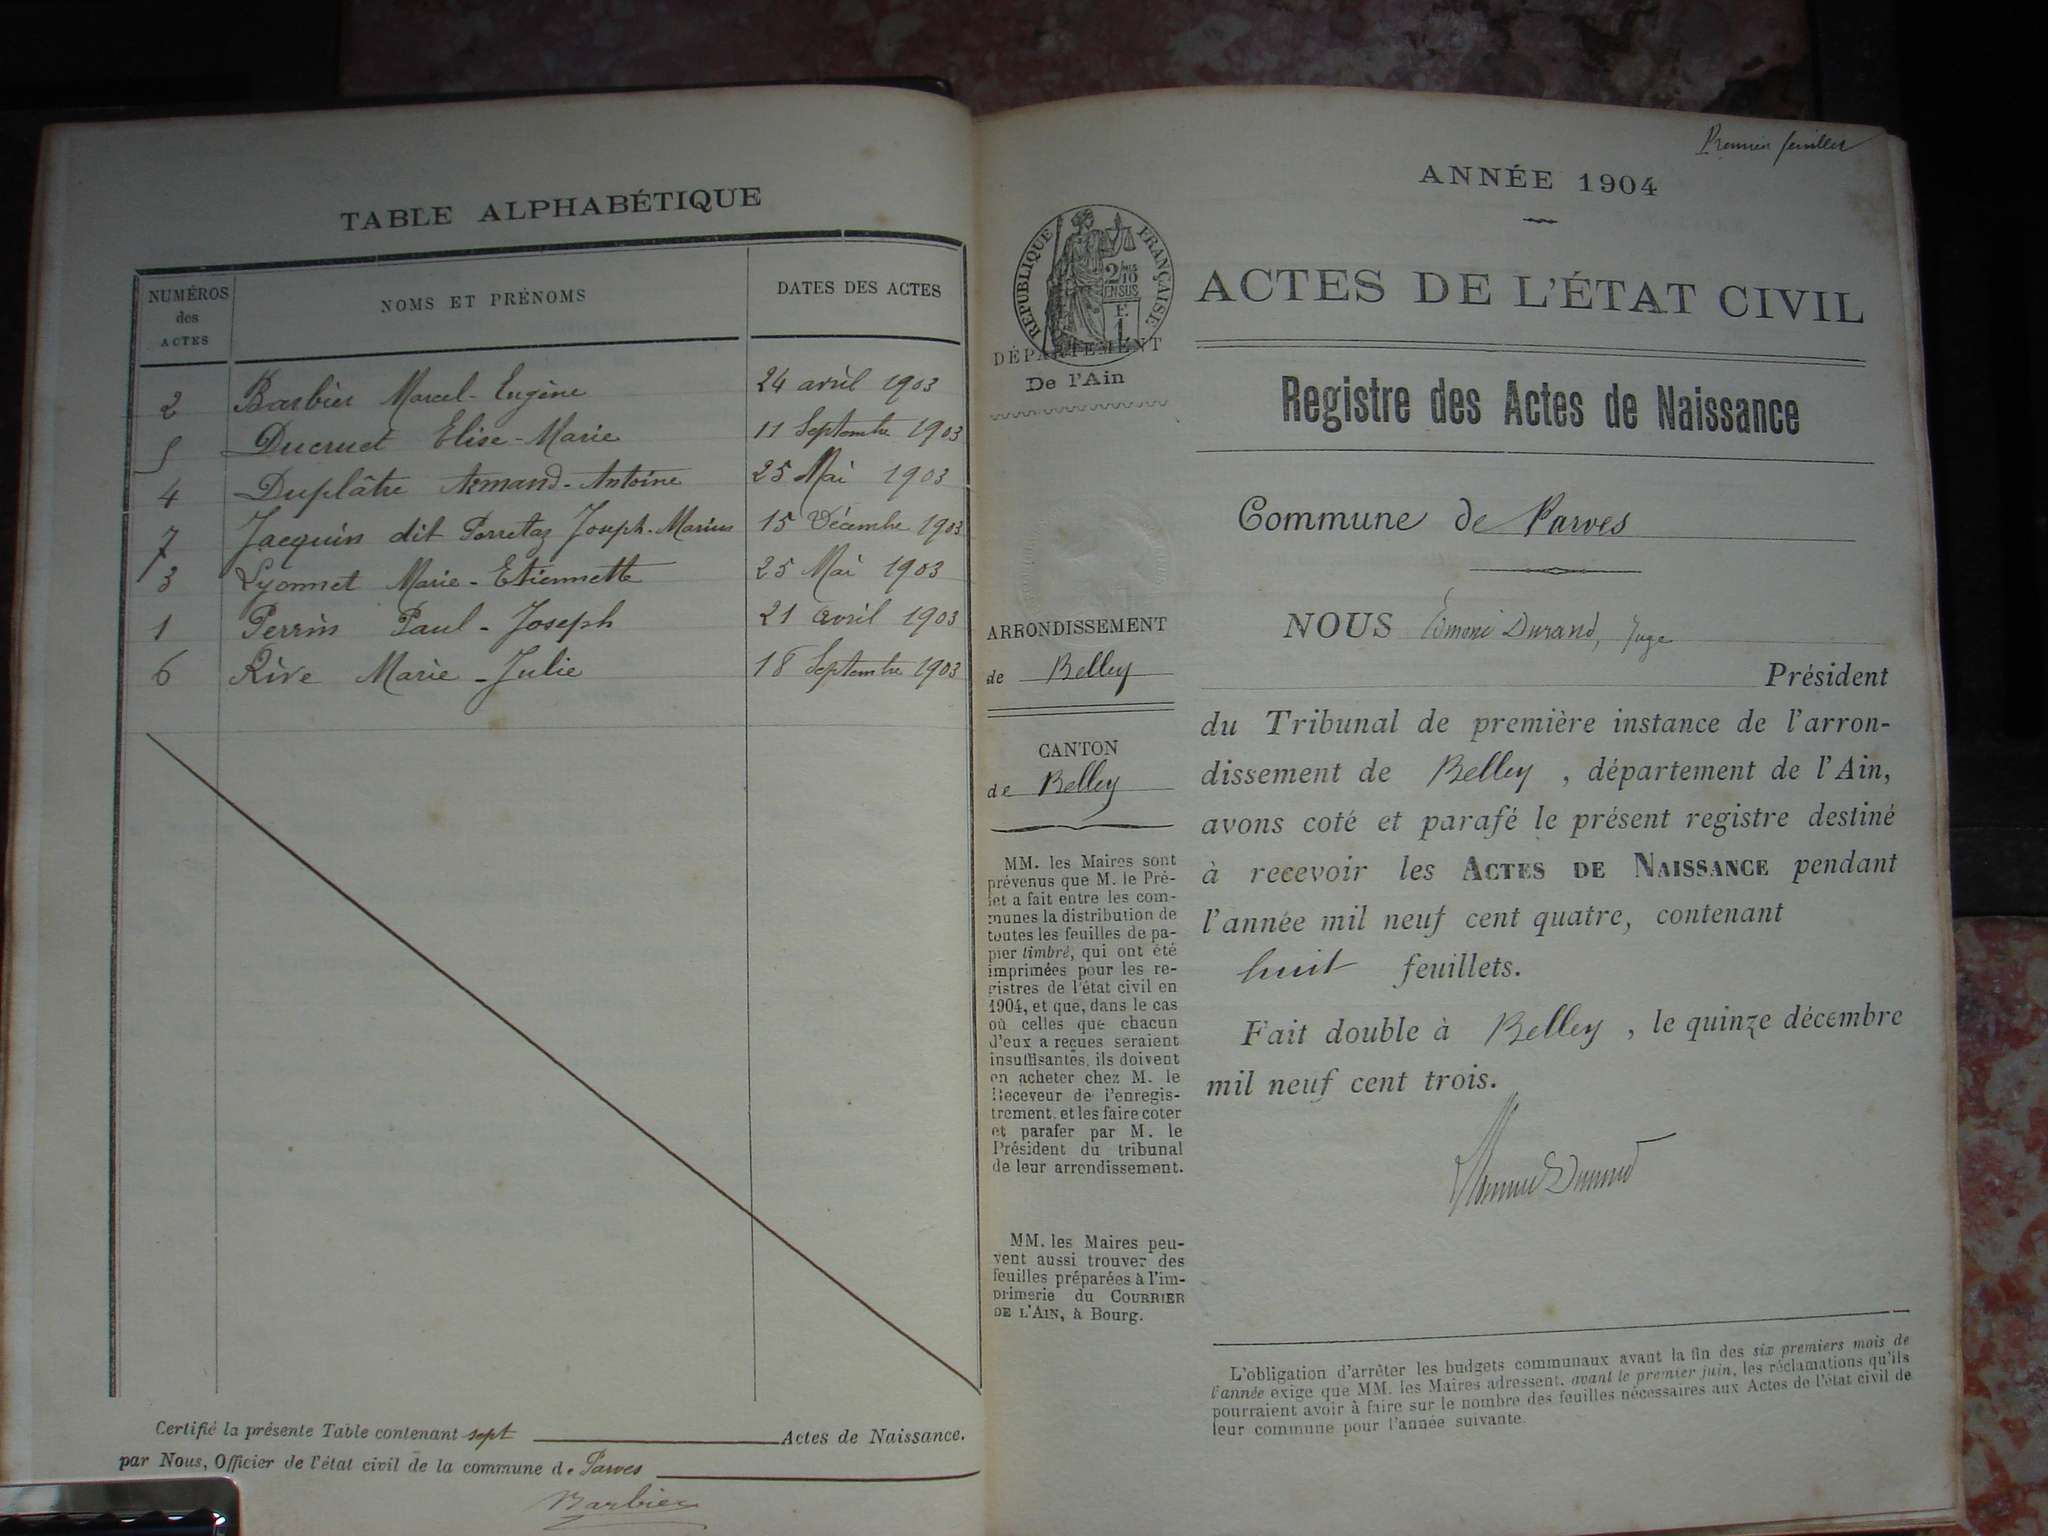 TABLE ALPHABÉTIQUE
NUMÉROS des ACTES
NOMS ET PRÉNOMS
DATES DES ACTES
2 Barbier Marcel-Eugène 24 avril 1903
5 Ducruet Elise-Marie 11 Septembre 1903
4 Duplâtre Armand-Antoine 25 Mai 1903
7 Jacquin dit Perretaz Joseph-Marius 15 Décembre 1903
3 Lyonnet Marie-Etiennette 25 Mai 1903
1 Perrin Paul-Joseph 21 avril 1903
6 Rive Marie-Julie 18 Septembre 1903
Certifié la présente Table contenant sept Actes de Naissance.
par Nous, Officier de l'état civil de la commune de Parves
Barbier
Premier feuillet
ANNÉE 1904
RÉPUBLIQUE FRANÇAISE
2/10 EN SUS
F. 1
DÉPARTEMENT
De l'Ain
ARRONDISSEMENT
de Belley
CANTON
de Belley
MM. les Maires sont
prévenus que M. le Pré-
fet a fait entre les com-
munes la distribution de
toutes les feuilles de pa-
pier timbré, qui ont été
imprimées pour les re-
gistres de l'état civil en
1904, et que, dans le cas
où celles que chacun
d'eux a reçues seraient
insuffisantes, ils doivent
en acheter chez M. le
Receveur de l'enregis-
trement, et les faire coter
et parafer par M. le
Président du tribunal
de leur arrondissement.
MM. les Maires peu-
vent aussi trouver des
feuilles préparées à l'im-
primerie du COURRIER
DE L'AIN, à Bourg.
ACTES DE L'ÉTAT CIVIL
Registre des Actes de Naissance
Commune de Parves
NOUS Durand, Juge
Président
du Tribunal de première instance de l'arron-
dissement de Belley, département de l'Ain,
avons coté et parafé le présent registre destiné
à recevoir les ACTES DE NAISSANCE pendant
l'année mil neuf cent quatre, contenant
huit feuillets.
Fait double à Belley, le quinze décembre
mil neuf cent trois.
Durand
L'obligation d'arrêter les budgets communaux avant la fin des six premiers mois de
l'année exige que MM. les Maires adressent, avant le premier juin, les réclamations qu'ils
pourraient avoir à faire sur le nombre des feuilles nécessaires aux Actes de l'état civil de
leur commune pour l'année suivante.